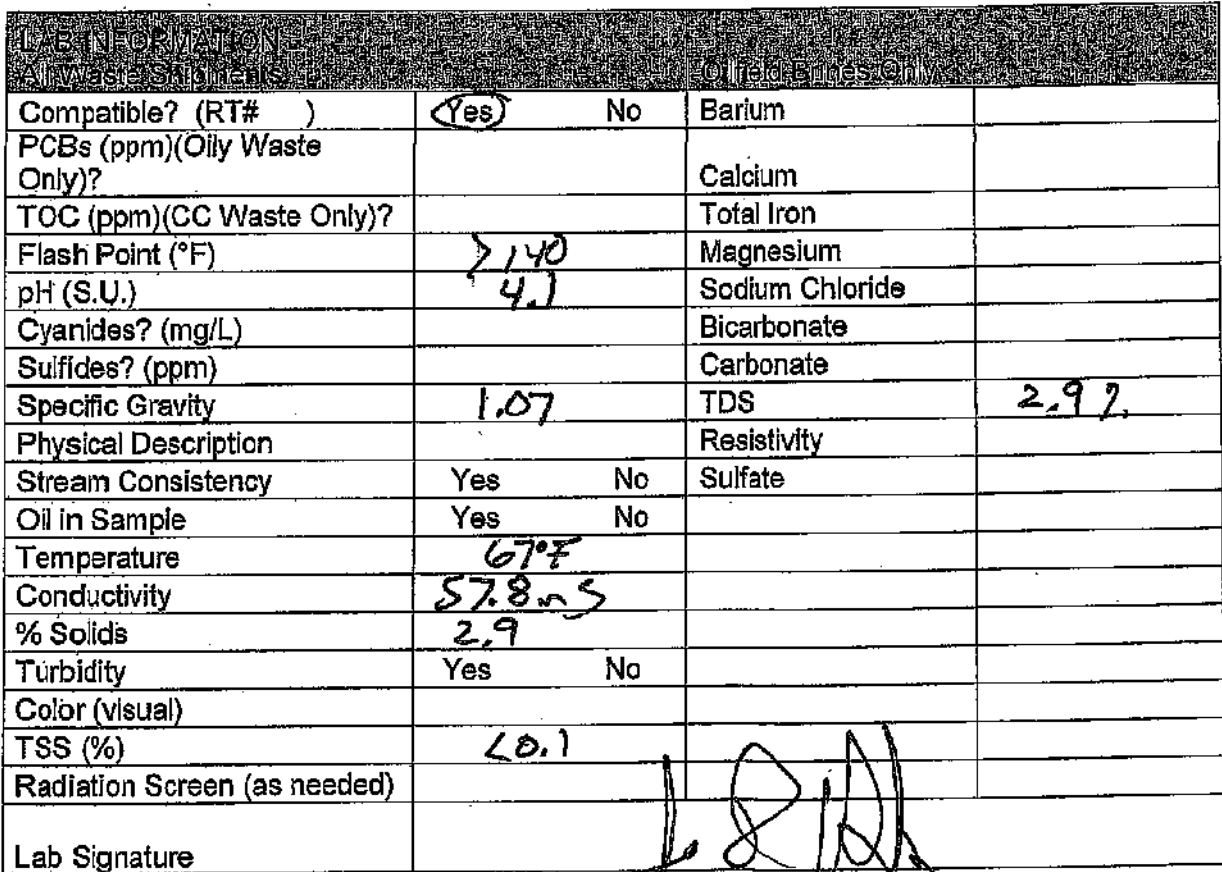 LAB INFORMATION
All Waste Shipments Oilfield Brines Only
Compatible? (RT# ) Yes No Barium
PCBs (ppm)(Oily Waste
Only)? Calcium
TOC (ppm)(CC Waste Only)? Total Iron
Flash Point (°F) >140 Magnesium
pH (S.U.) 4.1 Sodium Chloride
Cyanides? (mg/L) Bicarbonate
Sulfides? (ppm) Carbonate
Specific Gravity 1.07 TDS 2.9 %
Physical Description Resistivity
Stream Consistency Yes No Sulfate
Oil in Sample Yes No
Temperature 67°F
Conductivity 57.8 mS
% Solids 2.9
Turbidity Yes No
Color (visual)
TSS (%) <0.1
Radiation Screen (as needed)
Lab Signature